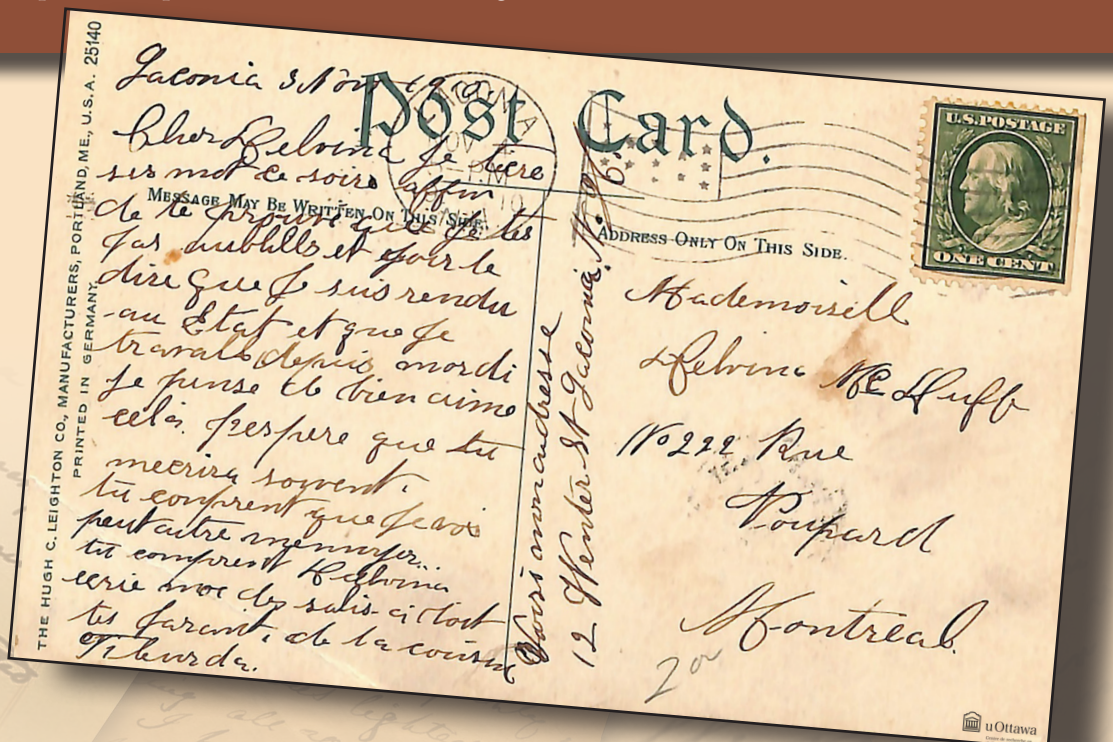 THE HUGH C. LEIGHTON CO., MANUFACTURERS, PORTLAND, ME., U.S.A. 25140
PRINTED IN GERMANY
Post Card.
MESSAGE MAY BE WRITTEN ON THIS SIDE.
ADDRESS ONLY ON THIS SIDE.
U.S. POSTAGE
ONE CENT
Laconia 3 Nov
Cher Delvina Je
ses mot ce soire affin
de te prouve que je tes
pas oublills et pour te
dire que Je suis rendu
au Etat et que Je
travals depuis mordi
Je pense te bien aime
cela. J'espere que tu
mecrira souvent.
tu comprent que Je vois
peut autre mennuyer.
tu comprent Delvina
ecrie moe des salis-citost
tes parant. de la cousine
Tiburda.
Voici mon adresse
12 Winter St Laconia N.H.
Mademoisell
Delvina Mc Duff
No 222 Rue
Poupard
Montreal.
uOttawa